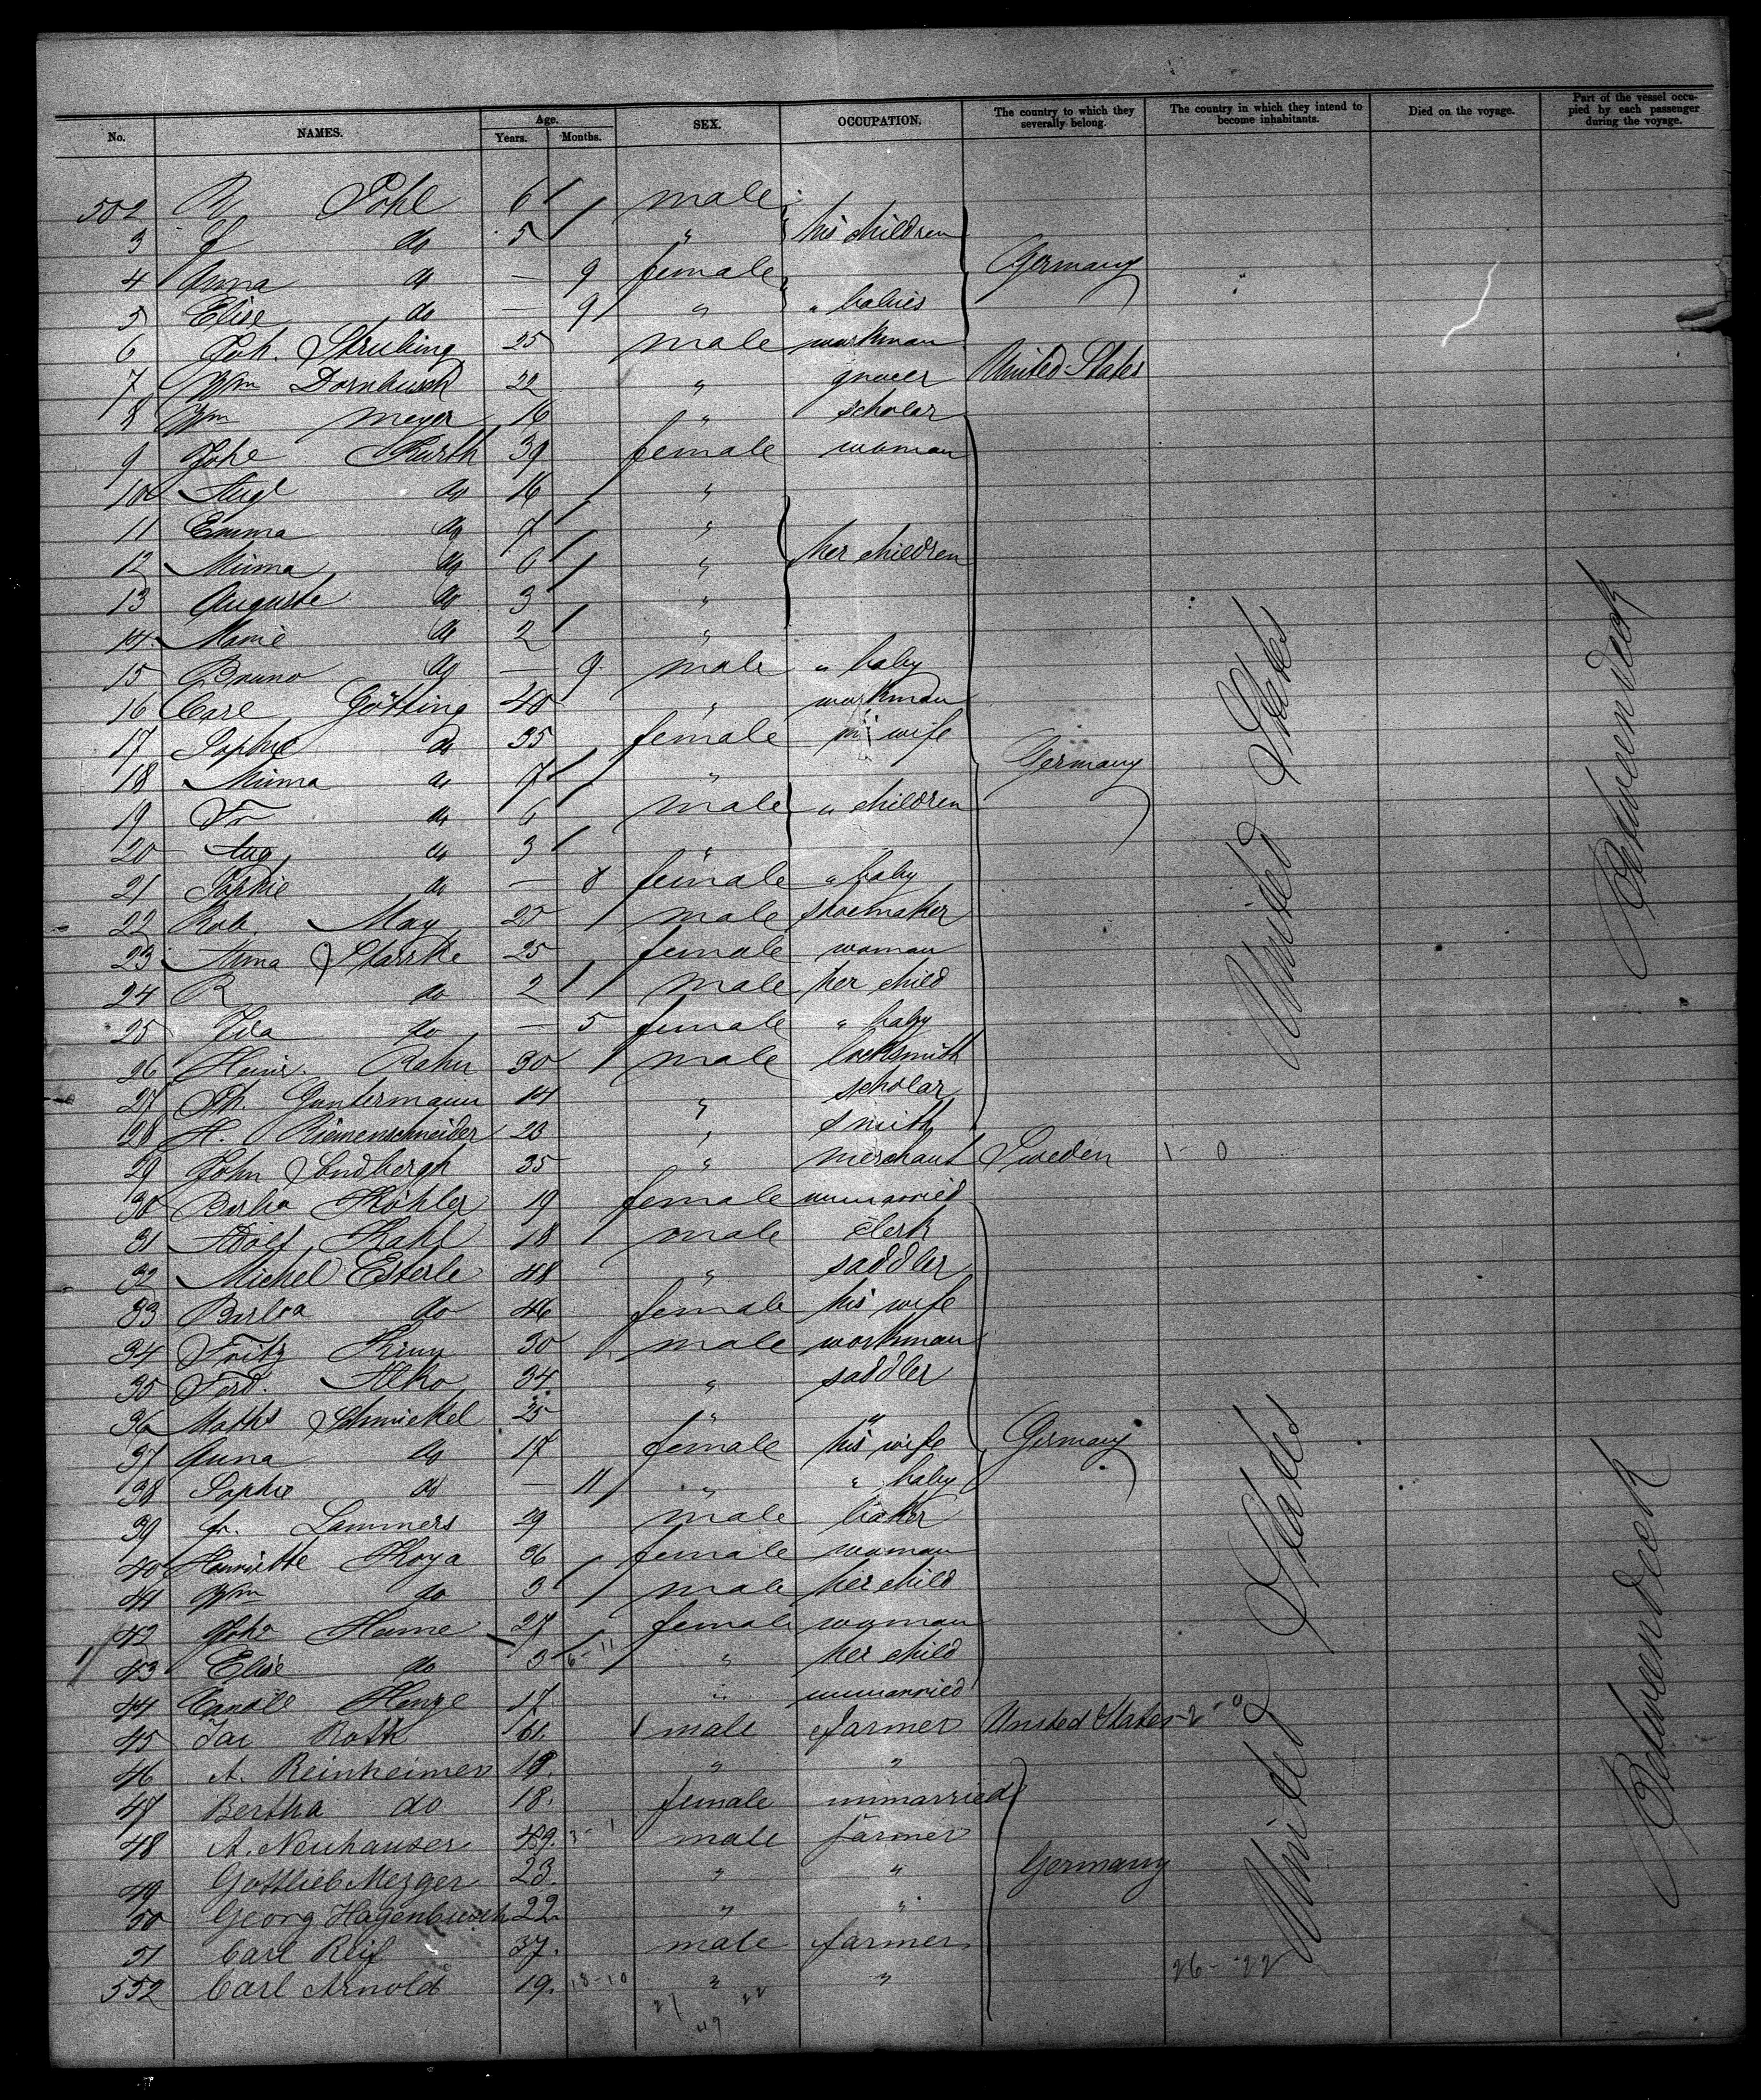 No. NAMES. Age. Years. Months. SEX. OCCUPATION. The country to which they severally belong. The country in which they intend to become inhabitants. Died on the voyage. Part of the vessel occupied by each passenger during the voyage.
502 R Pohl 6 male
3 do 5 " his children
4 Anna do — 9 female Germany
5 Elise do — 9 " " babies
6 Joh. Strubing 25 male workman
7 Wm Dornbusch 32 " grocer United States
8 Wm Meyer 16 " scholar
9 Johe Kurth 39 female woman
10 Augl do 16 "
11 Emma do 7 "
12 Minna do 6 " her children
13 Auguste do 3 "
14 Marie do 2 "
15 Bruno do — 9 male " baby
16 Carl Götting 40 " workman
17 Sophie do 35 female wife
18 Minna do 7 " Germany
19 Fr do 6 male " children
20 Aug do 3 "
21 Sophie do — 8 female " baby
22 Rob. May 20 male shoemaker
23 Anna Starske 25 female woman
24 R do 2 male her child
25 Ida do — 5 female " baby
26 Heinr. Rahn 30 male locksmith
27 Ph. Guntermann 14 " scholar
28 H. Riemenschneider 23 " smith
29 John Lindbergh 35 " merchant Sweden 1 - 0
30 Barba Köhler 19 female unmarried
31 Adolf Kahl 18 male clerk
32 Michel Esterle 48 " saddler
33 Barba do 46 female his wife
34 Fritz 30 male workman
35 Ferd. Alko 34 " saddler
36 Maths Schmickel 25 " "
37 Anna do 17 female his wife Germany
38 Sophie do — 11 " " baby
39 Fr. Lammers 29 male baker
40 Henriette Koya 36 female woman
41 Wm do 3 male her child
42 Johe Heine 27 female woman
43 Elise do 3 6 - 11 " her child
44 Carole Henze 17 " unmarried
45 Jac Roth 61. male farmer United States - 2 - 0
46 A. Reinheimer 19. " "
47 Bertha do 18. female unmarried
48 A. Neuhauser 49. 3 - 1 male farmer
49 Gottlieb Mezger 23. " " Germany
50 Georg Hagenbusch 22. " "
51 Carl Reif 37. male farmer
552 Carl Arnold 19. 18 - 10 " " 26 - 22
27 22
49
United States
United States
Between deck
Between deck